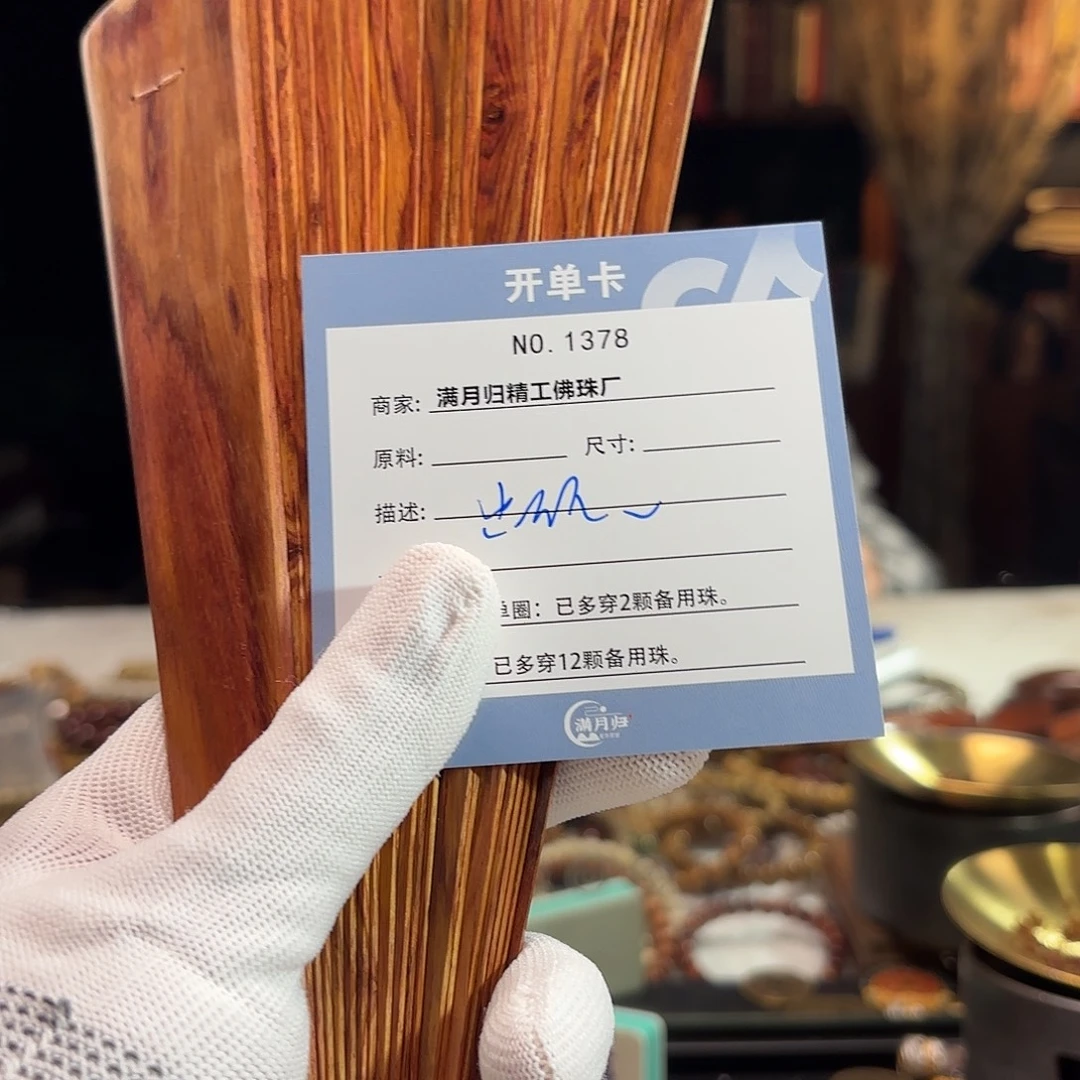 开单卡
NO. 1378
商家: 满月归精工佛珠厂
原料: 尺寸:
描述:
单圈：已多穿2颗备用珠。
已多穿12颗备用珠。
满月归